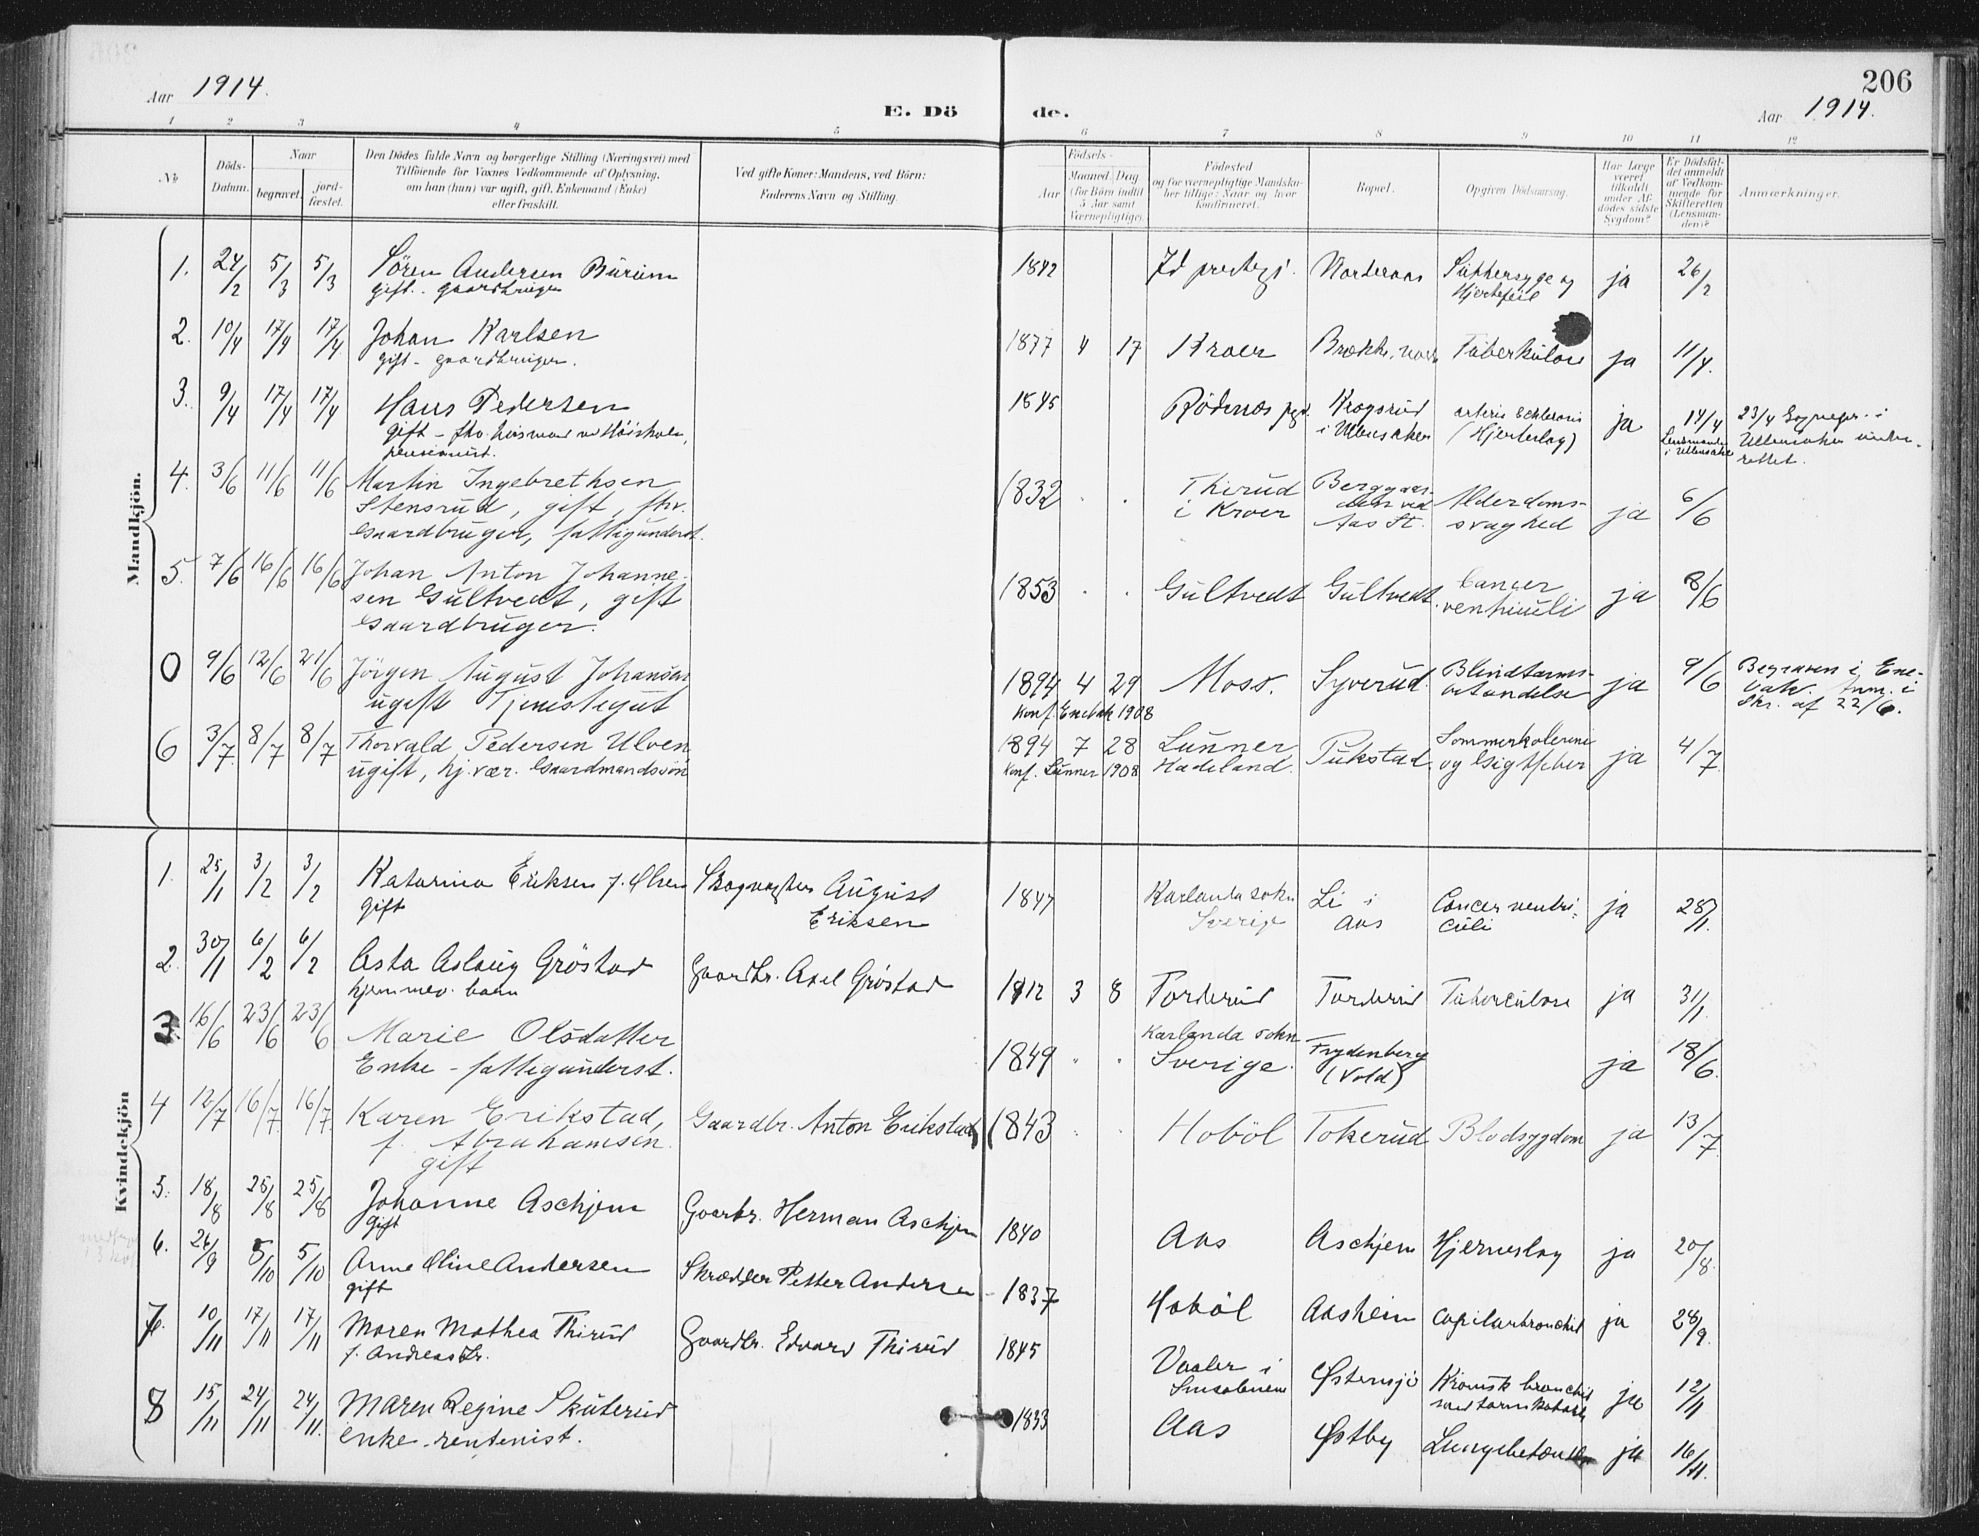 206
Aar 1914.
E. Dö de.
Aar 1914.
1 2 3 4 5 6 7 8 9 10 11 12
No.
Döds-
Datum.
Naar
begravet.
jord-
fæstet.
Den Dödes fulde Navn og borgerlige Stilling (Næringsvei) med
Tilföiende for Voxnes Vedkommende af Oplysning,
om han (hun) var ugift, gift, Enkemand (Enke)
eller fraskilt.
Ved gifte Koner: Mandens, ved Börn:
Faderens Navn og Stilling.
Födsels-
Aar
Maaned. Dag
(for Börn indtil
5 Aar samt
Værnepligtige).
Födested
og for værnepligtige Mandska-
ber tillige: Naar og hvor
konfirmeret.
Bopæl.
Opgiven Dödsaarsag.
Har Læge
været
tilkaldt
under Af-
dödes sidste
Sygdom?
Er Dödsfal-
det anmeldt
af Vedkom-
mende for
Skifteretten
(Lensman-
den)?
Anmærkninger.
Mandkjön.
1. 24/2 5/3 5/3 Sören Andersen Burum 1842 Id prestegj. Norderaas Sukkersyge og ja 26/2
gift - gaardbruger Hjertefeil
2. 10/4 17/4 17/4 Johan Karlsen 1877 4 17 Kroer Tuberkulose ja 11/4.
gift - gaardbruger.
3. 9/4 17/4 17/4 Hans Pedersen 1845 Rödenæs pgd. Krogsrud ja 14/4 23/4 Sognepr. i
gift - fhv. husmand ved Höiskolen, i Ullensaker (Hjerteslag) Lensmanden Ullensaker under-
pensionist. i Ullensaker rettet.
4. 3/6 11/6 11/6 Martin Ingebrethsen 1832 Thirud
Stensrud, gift, fhv. i Kroer Aas St. Alderdoms- ja 6/6
Gaardbruger, fattigunderst. svaghed
5. 7/6 16/6 16/6 Johan Anton Johanne- 1853 Gultvedt Gultvedt. Cancer ja 8/6
sen Gultvedt, gift ventriculi
Gaardbruger.
0 9/6 12/6 21/6 Jörgen August Johansen 1894 4 29 Moss. Syverud. Blindtarms- ja 9/6 Begraven i Ene-
ugift Tjenestegut Konf. Enebak 1908 betændelse bak. Anm. i
Skr. af 22/6.
6 3/7 8/7 8/7 Thorvald Pedersen Ulven 1894 7 28 Lunner Pukstad. Sommerkolerine ja 4/7.
ugift, hj.vær. Gaardmandssön Konf. Lunner 1908 Hadeland. og Gigtfeber
Kvindekjön
1. 25/1 3/2 3/2 Katarina Eriksen f. Olsen Skogvogter August 1847 Karlanda sokn Li i Cancer ventri- ja 28/1.
gift Eriksen Sverige Aas culi
2. 30/1 6/2 6/2 Asta Aslaug Gröstad Gaardbr. Axel Gröstad 1912 3 8 Torderud Torderud Tuberculose ja 31/1.
hjemmev. barn
3. 16/6 23/6 23/6 Marie Olsdatter 1849 Karlanda sokn Frydenberg ja 18/6.
Enke - fattigunderst. Sverige. (Vold)
4 12/7 16/7. 16/7. Karen Erikstad, Gaardbr. Anton Erikstad 1843 Hoböl Tokerud Blodsygdom ja 13/7.
f. Abrahamsen
gift
5. 18/8 25/8 25/8 Johanne Aschjem Gaarbr. Herman Aschjem 1840 Aas Aschjem Hjerneslag ja 20/8.
gift
6. 26/9 5/10 5/10 Anne Oline Andersen Skrædder Petter Andersen 1837 Hoböl Aasheim capilarbronchit ja 28/9.
gift
7. 10/11 17/11 17/11 Maren Mathea Thirud Gaardbr. Edvard Thirud 1845 Vaaler i Østensjö Kronisk bronchit ja 12/11
f. Andreasdtr. Smaalenene med tarmkatarr
8 15/11 24/11 24/11. Maren Regine Skuterud 1833 Aas Østby Lungebetændelse ja 16/11.
enke - rentenist.